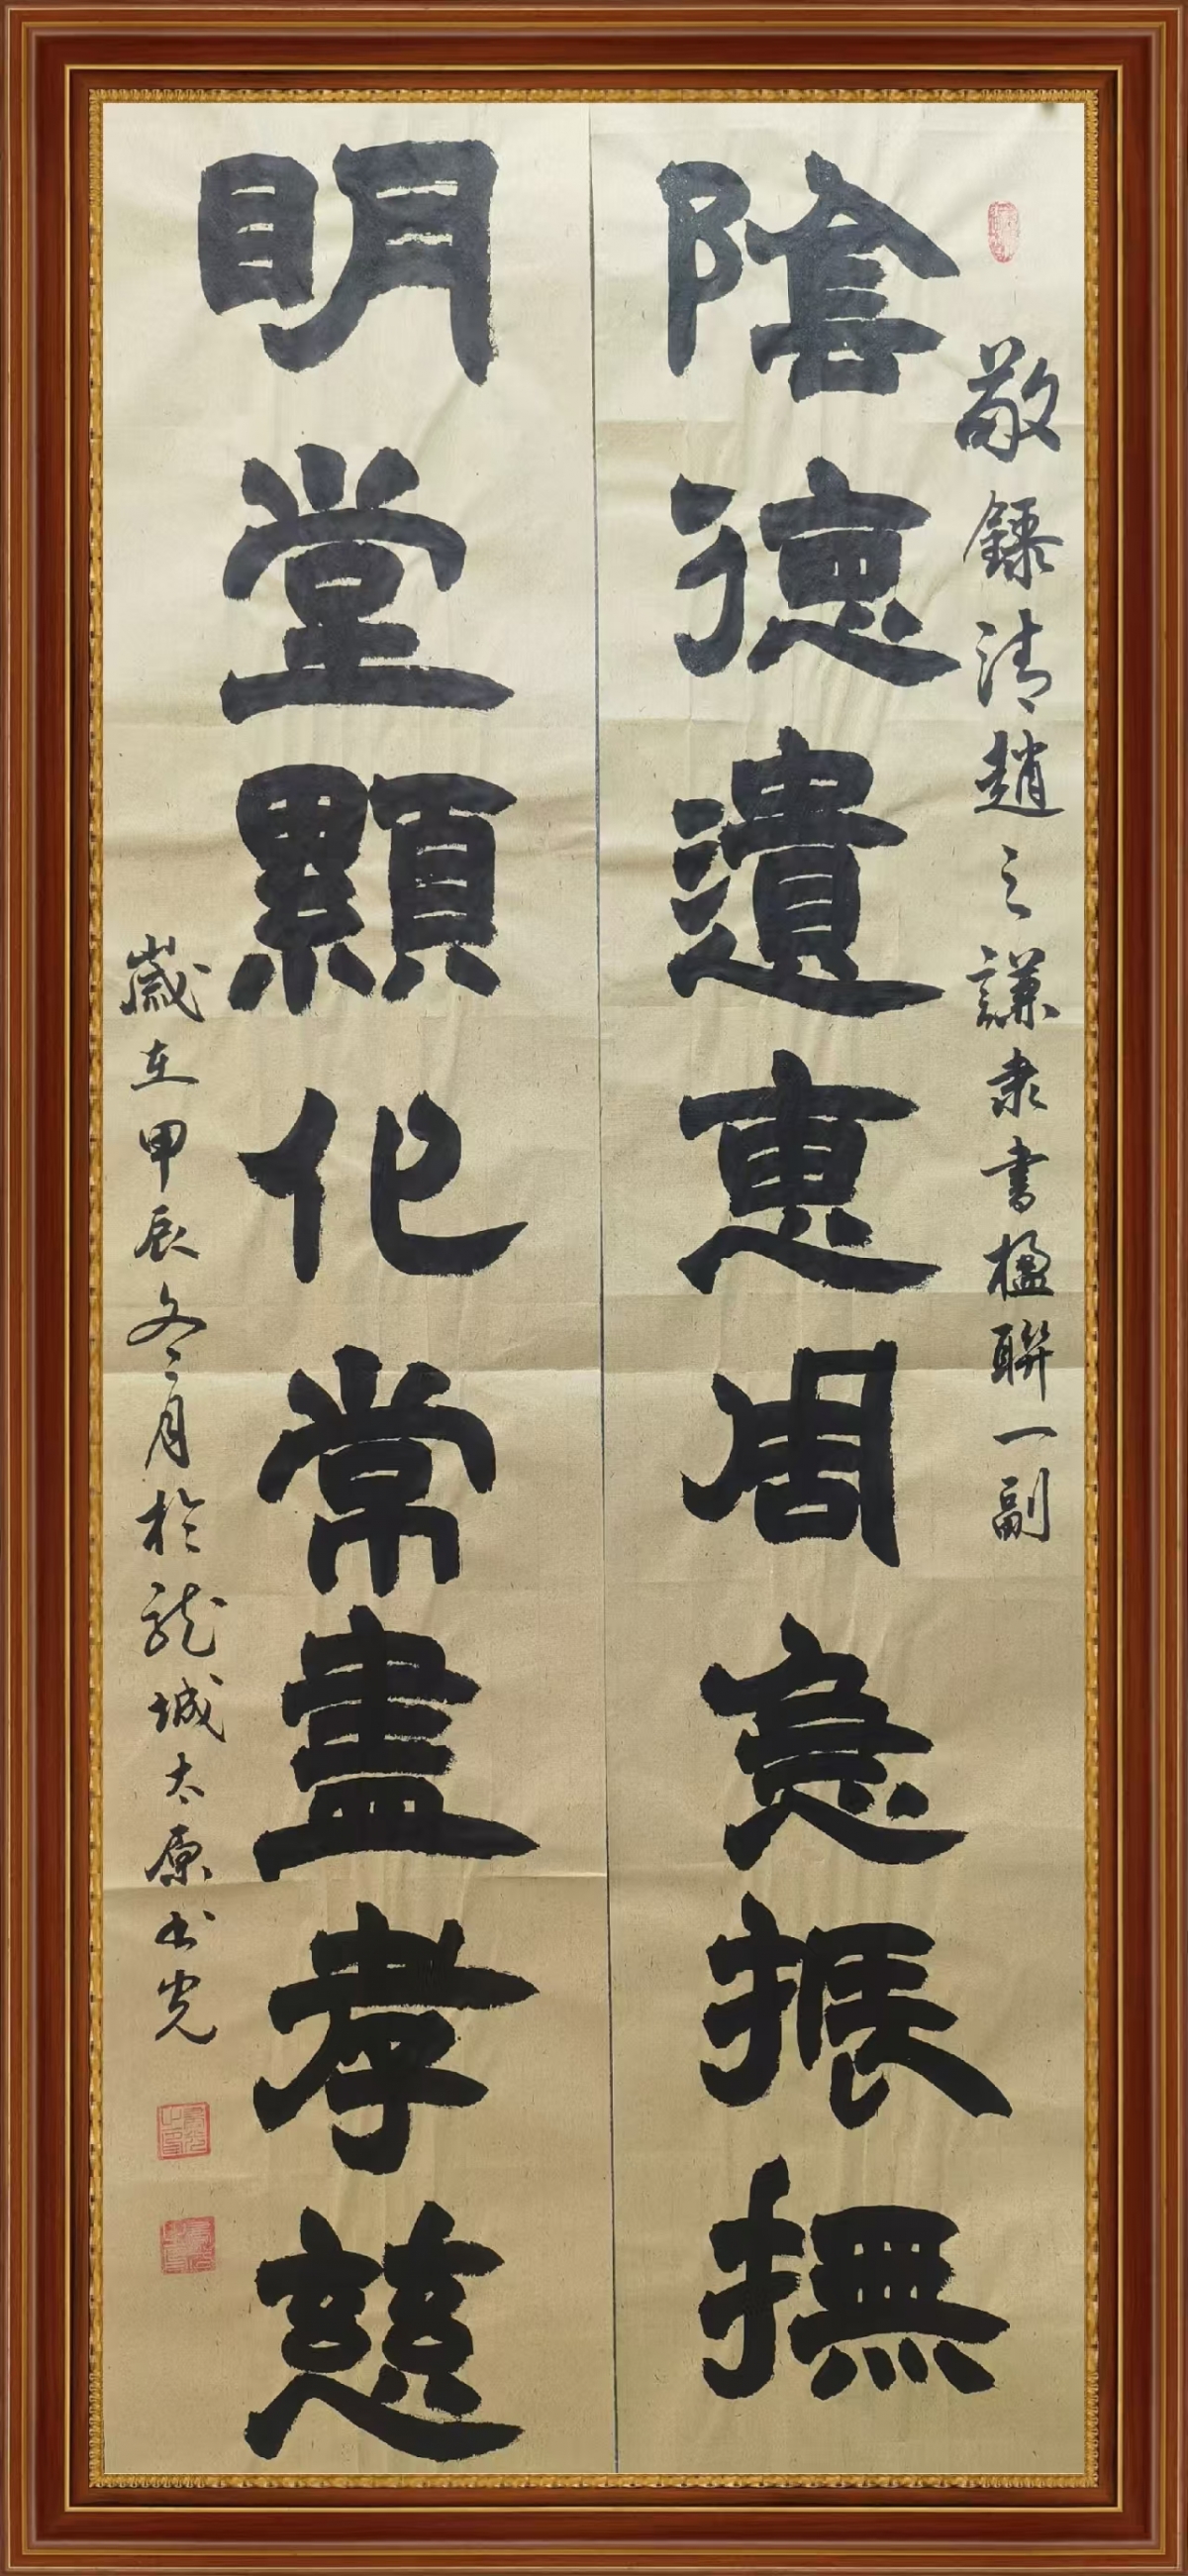 敬錄清趙之謙隶書楹聯一副
陰德遺惠周急振撫
明堂顯化常盡孝慈
歲在甲辰冬月於龍城太原书光